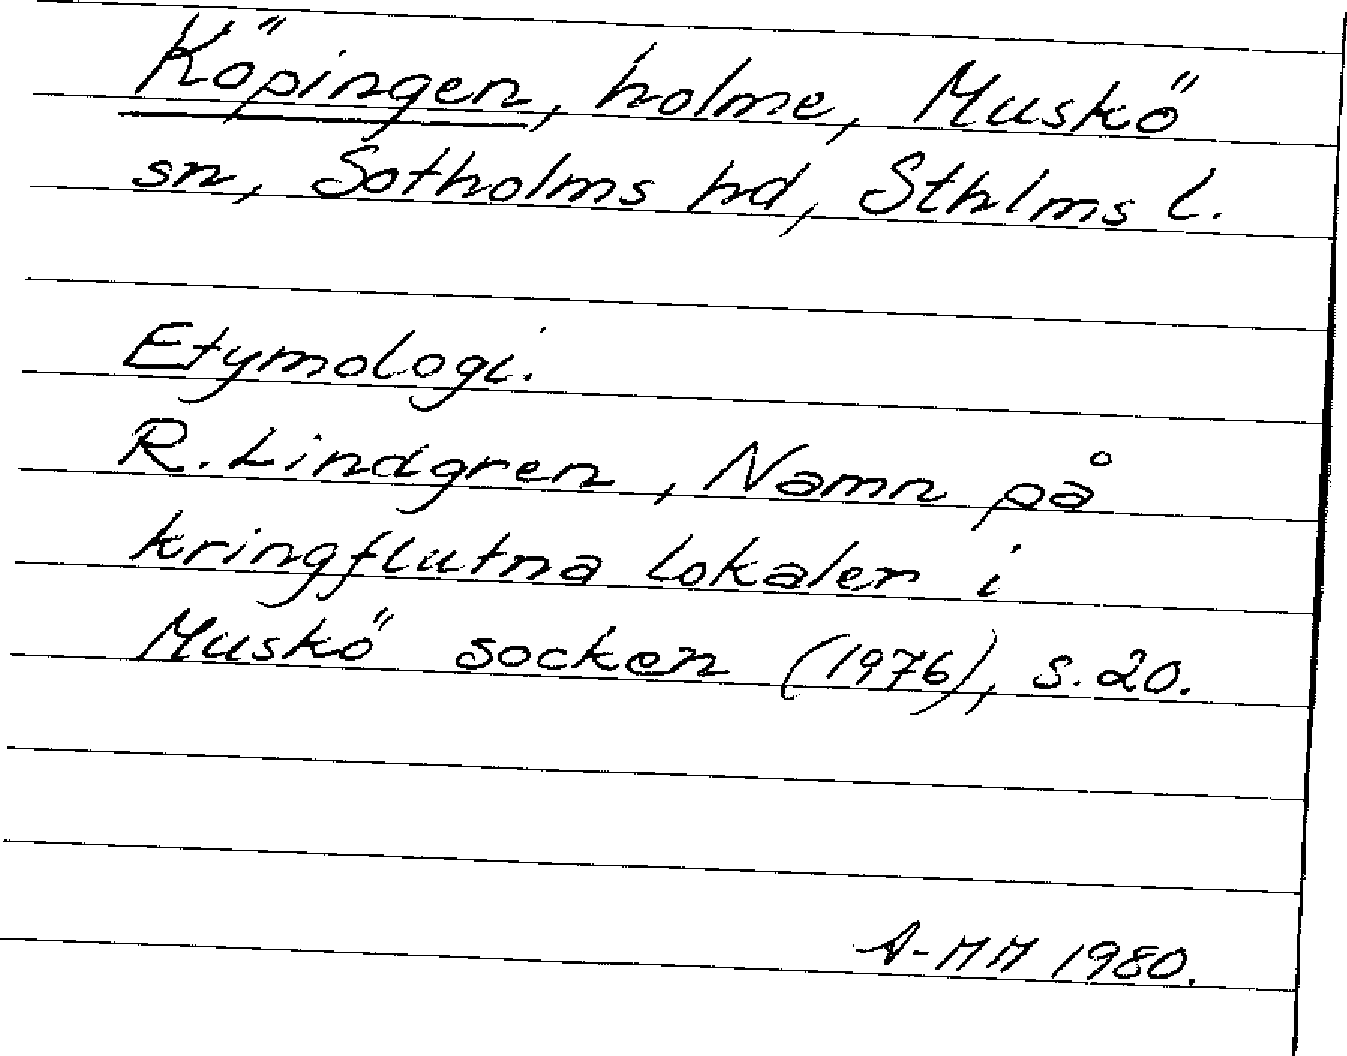 Köpingen, holme, Muskö
sn, Sotholms hd, Sthlms l.
Etymologi.
R. Lindgren, Namn på
kringflutna lokaler i
Muskö socken (1976), s. 20.
A-MM 1980.